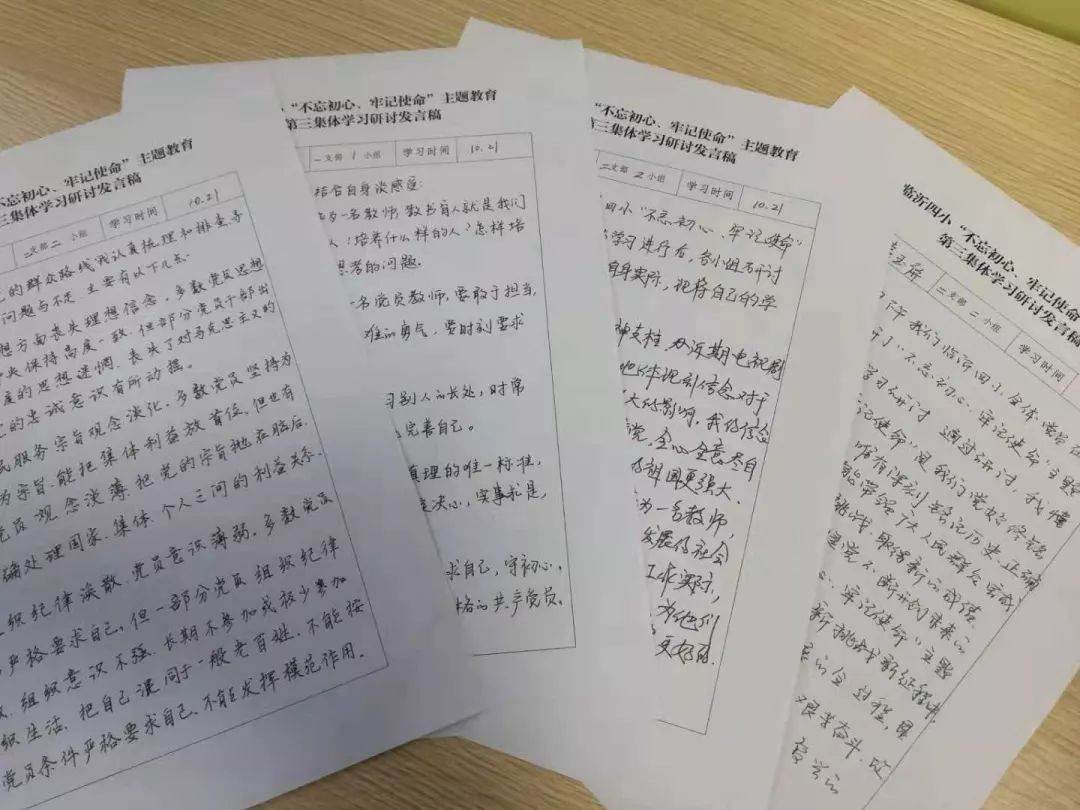 不忘初心、牢记使命”主题教育
三集体学习研讨发言稿
二支部 二 小组 学习时间 10.21
的群众路线我认真梳理和排查、寻
问题与不足,主要有以下几点.
想方面丧失理想信念,多数党员思想
央保持高度一致.但部分党员干部出
度的思想迷惘、丧失了对马克思主义的
的忠诚意识有所动摇。
民服务宗旨观念淡化.多数党员坚持为
为宗旨.能把集体利益放首位,但也有
党员 观念淡薄.把党的宗旨抛在脑后.
确处理国家、集体、个人之间的利益关系.
组织纪律涣散、党员意识薄弱.多数党员
严格要求自己,但一部分党员 组织纪律
组织意识不强.长期不参加或极少参加
织生活.把自己混同于一般老百姓.不能按
党员条件严格要求自己.不能发挥模范作用.
“不忘初心、牢记使命”主题教育
第三集体学习研讨发言稿
一支部 1 小组 学习时间 10.21
结合自身谈感受:
一名教师 教书育人就是我们
人?培养什么样的人?怎样培
思考的问题.
一名党员教师,要敢于担当,
难的勇气,要时刻要求
习别人的长处,时常
完善自己.
真理的唯一标准,
决心,实事求是,
求自己,守初心,
格的共产党员.
“不忘初心、牢记使命”主题教育
第三集体学习研讨发言稿
二支部 2 小组 学习时间 10.21
四小“不忘初心、牢记使命”
学习进行后,各小组研讨
自身实际,把将自己的学
神支柱.
大的影响,我的信念
党,全心全意
祖国更强大.
为一名教师,
发展的社会
工作实际,
为他们
更好的.
临沂四小“不忘初心、牢记使命
第三集体学习研讨发言稿
二支部 二 小组 学习时间
我们临沂四小全体党员在
了“不忘初心、牢记使命”主题
学习研讨 通过研讨,我懂
记使命”是我们党
带领广大人民群众完成
挑战,取得新的成绩
牢记使命”主题
新挑战新征程中
的全过程,
艰苦奋斗.